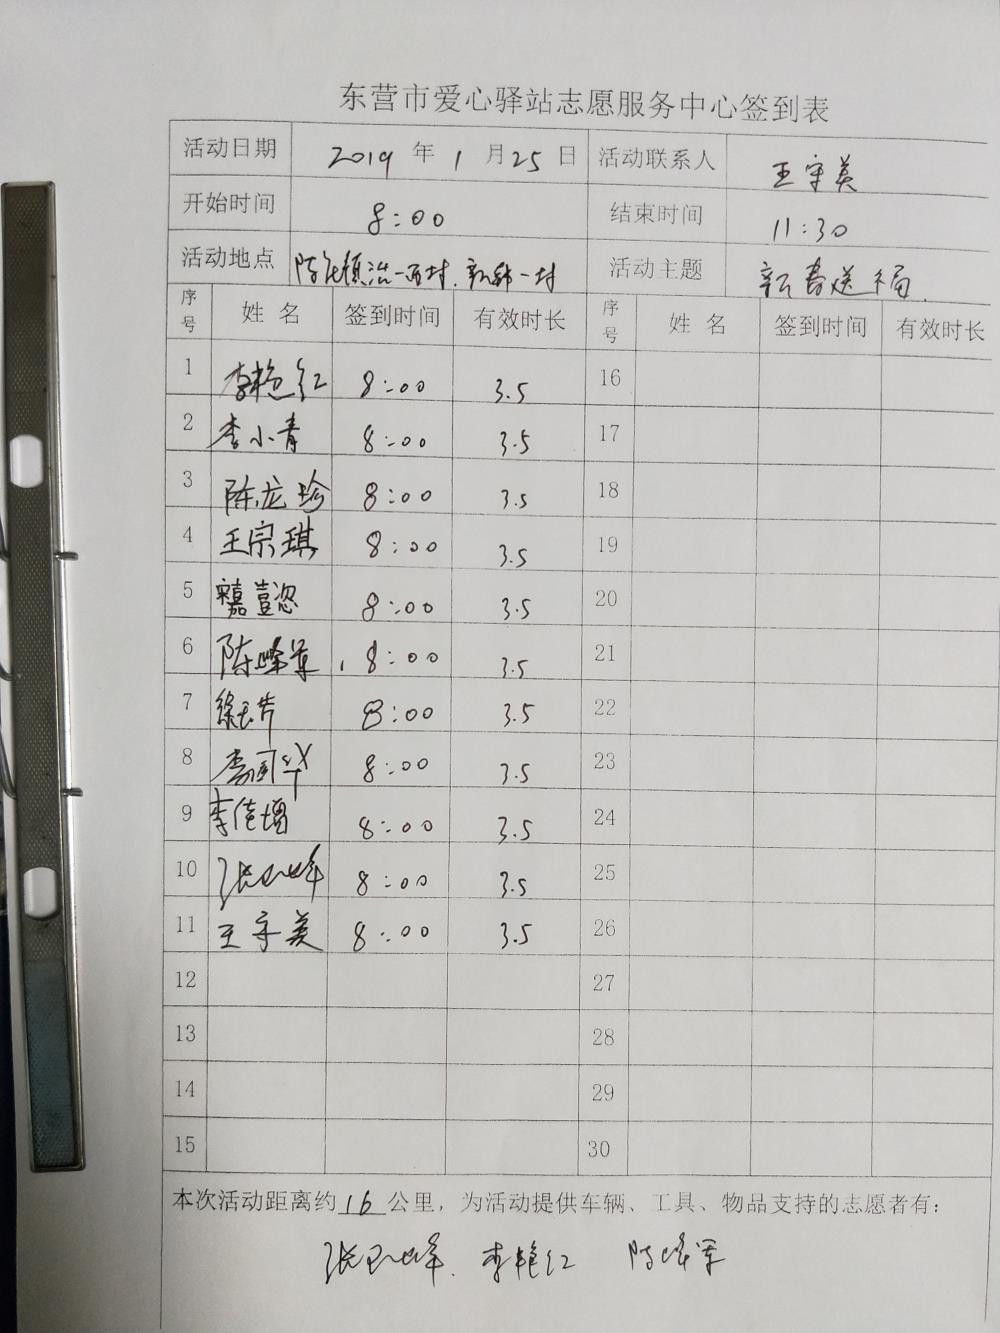 东营市爱心驿站志愿服务中心签到表
活动日期 2019 年 1 月 25 日 活动联系人 王守美
开始时间 8:00 结束时间 11:30
活动地点 陈庄镇 一村 活动主题 新春送福
序号 姓名 签到时间 有效时长 序号 姓名 签到时间 有效时长
1 李艳红 8:00 3.5 16
2 李小青 8:00 3.5 17
3 陈龙珍 8:00 3.5 18
4 王宗琪 8:00 3.5 19
5 8:00 3.5 20
6 陈峰军 8:00 3.5 21
7 8:00 3.5 22
8 李国华 8:00 3.5 23
9 8:00 3.5 24
10 8:00 3.5 25
11 王守美 8:00 3.5 26
12 27
13 28
14 29
15 30
本次活动距离约 16 公里，为活动提供车辆、工具、物品支持的志愿者有：
李艳红 陈峰军